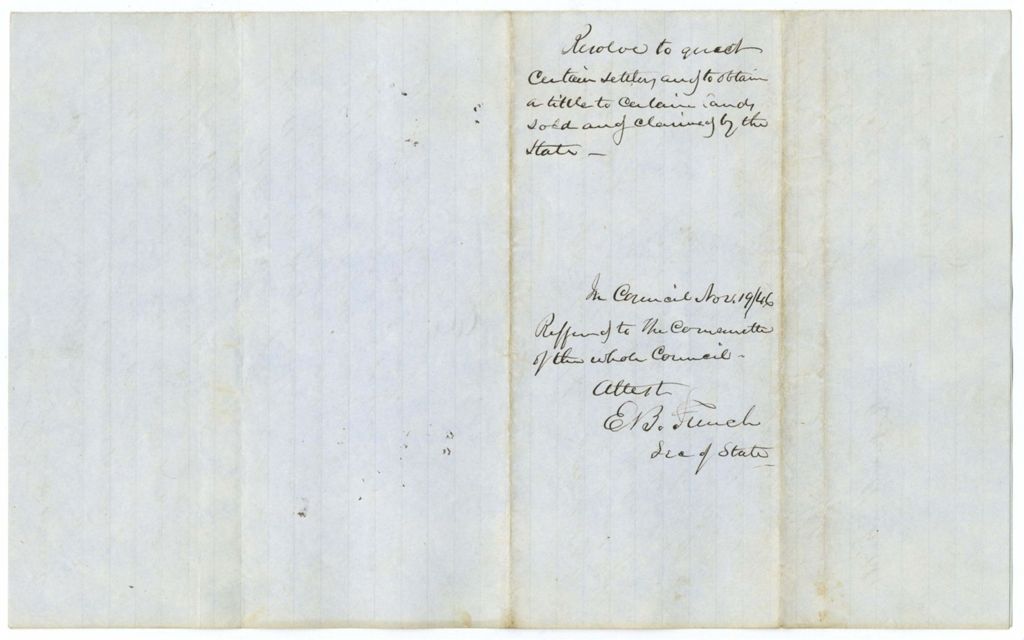 Resolve to quiet
certain settlers and to obtain
a tittle to certain lands
sold and claimed by the
State —
In Council Nov. 19/46
Reffered to the Committe
of the whole Council -
Attest
E. B. French
Sec of State